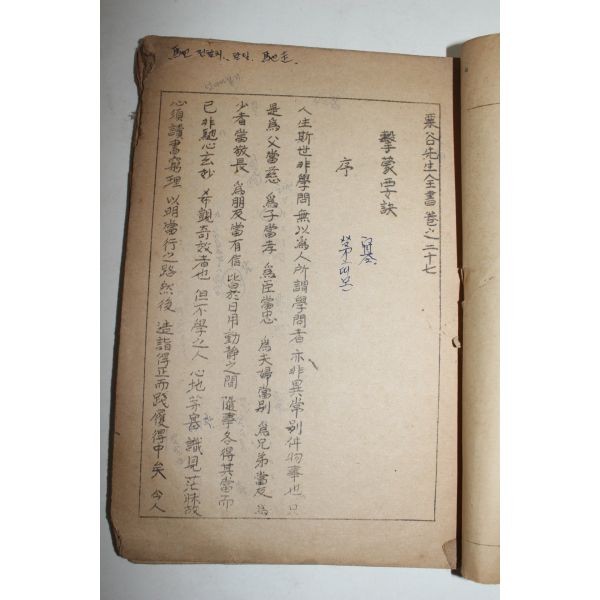 栗谷先生全書 卷之二十七
擊蒙要訣
序
人生斯世 非學問 無以爲人 所謂學問者 亦非異常別件物事也 只
是爲父當慈 爲子當孝 爲臣當忠 爲夫婦當別 爲兄弟當友 爲
少者當敬長 爲朋友當有信 皆於日用動靜之間 隨事各得其當而
已 非馳心玄妙 希覬奇效者也 但不學之人 心地茅塞 識見茫昧 故
必須讀書窮理 以明當行之路 然後 造詣得正而踐履得中矣 今人
馳 달릴치. 馳走.